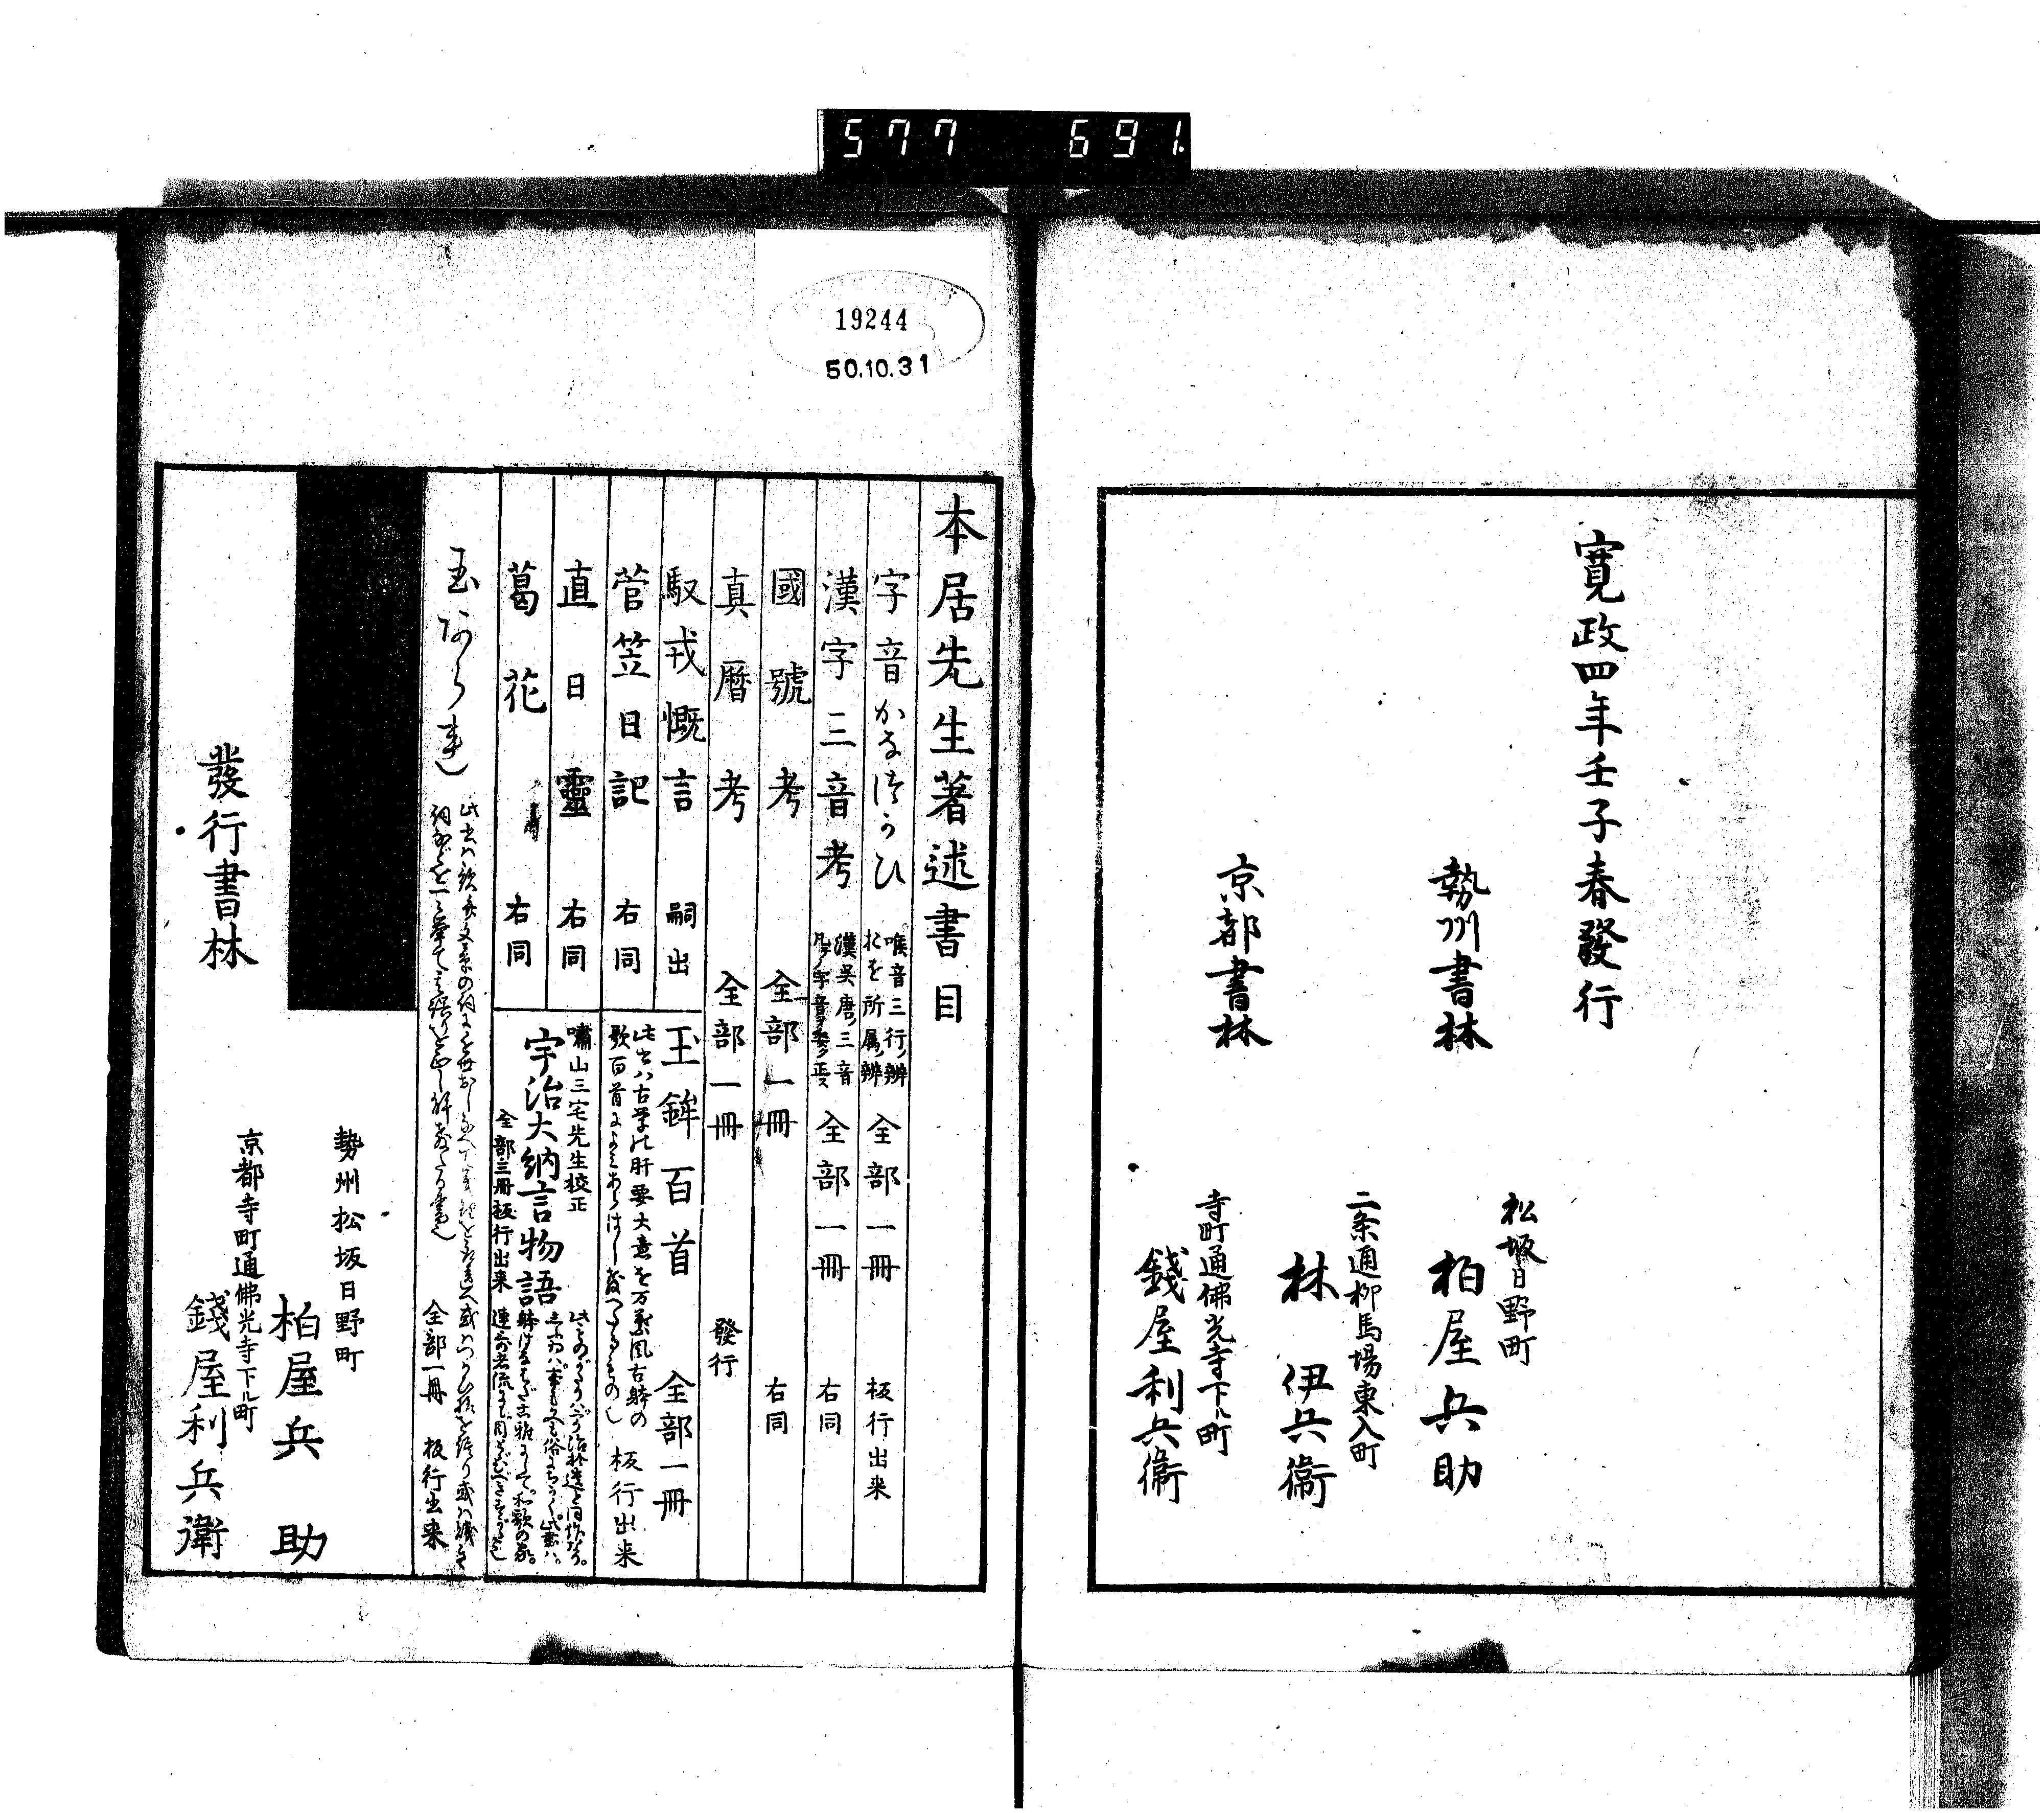 577 691.
寛政四年壬子春發行
勢州書林
松坂日野町
柏屋兵助
京都書林
二条通柳馬場東入町
林伊兵衞
寺町通佛光寺下ル町
錢屋利兵衞
19244
50.10.31
本居先生著述書目
字音かなづかひ
喉音三行ノ辨
おを所属ノ辨
全部一冊
板行出来
漢字三音考
漢呉唐ノ三音
全部一冊
右同
國號考
全部一冊
右同
真暦考
全部一冊
發行
馭戎慨言
嗣出
菅笠日記
右同
直日靈
右同
葛花
右同
玉鉾百首
全部一冊
此書ハ古学の肝要大意を万葉風古躰の
歌百首によみあらはし
板行出来
嘯山三宅先生校正
宇治大納言物語
全部三冊板行出来
玉あられ
全部一冊
板行出来
發行書林
勢州松坂日野町
柏屋兵助
京都寺町通佛光寺下ル町
錢屋利兵衛